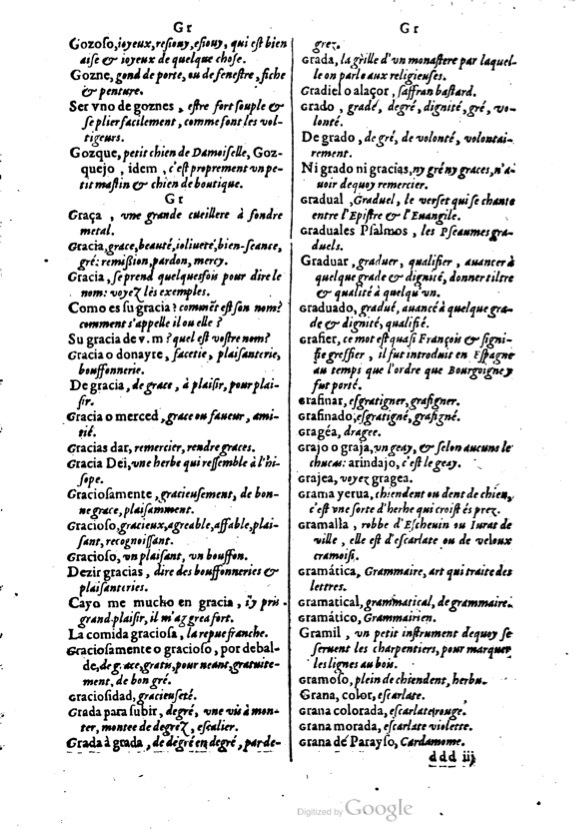 Gr
Gozoso, joyeux, resiouy, esiouy, qui est bien
aise & ioyeux de quelque chose.
Gozne, gond de porte, ou de fenestre, fiche
& penture.
Ser vno de goznes, estre fort souple &
se plier facilement, comme sont les vol-
tigeurs.
Gozque, petit chien de Damoiselle, Goz-
quejo, idem, c'est proprement vn pe-
tit mastin & chien de boutique.
Gr
Graça, vne grande cueillere à fondre
metal.
Gracia, grace, beauté, ioliueté, bien-seance,
gré: remißion, pardon, mercy.
Gracia, se prend quelquesfois pour dire le
nom: voyez les exemples.
Como es su gracia? commẽt est son nom?
comment s'appelle il ou elle?
Su gracia de v.m? quel est vostre nom?
Gracia o donayre, facetie, plaisanterie,
bouffonnerie.
De gracia, de grace, à plaisir, pour plai-
sir.
Gracia o merced, grace ou faueur, ami-
tié.
Gracias dar, remercier, rendre graces.
Gracia Dei, vne herbe qui ressemble à l'hi-
sope.
Graciosamente, gracieusement, de bon-
ne grace, plaisamment.
Gracioso, gracieux, agreable, affable, plai-
sant, recognoissant.
Gracioso, vn plaisant, vn bouffon.
Dezir gracias, dire des bouffonneries &
plaisanteries.
Cayo me mucho en gracia, i'y pris
grand plaisir, il m'aggrea fort.
La comida graciosa, la repue franche.
Graciosamente o gracioso, por debal-
de, de grace, gratis, pour neant, gratuite-
ment, de bon gré.
graciosidad, gracieuseté.
Grada para subir, degré, vne vis à mon-
ter, montee de degrez, escalier.
Grada à grada, de degré en degré, par de-
Gr
grez.
Grada, la grille d'un monastere par laquel-
le on parle aux religieuses.
Gradiel o alaçor, saffran bastard.
Grado, gradé, degré, dignité, gré, vo-
lonté.
De grado, de gré, de volonté, volontai-
rement.
Ni grado ni gracias, ny gré ny graces, n'a-
uoir dequoy remercier.
Gradual, Graduel, le verset qui se chante
entre l'Epistre & l'Euangile.
Graduales Psalmos, les Pseaumes gra-
duels.
Graduar, graduer, qualifier, auancer à
quelque grade & dignité, donner tiltre
& qualité à quelqu'un.
Graduado, gradué, auancé à quelque gra-
de & dignité, qualifié.
Grafier, ce mot est quasi François & signi-
fie greffier, il fut introduit en Espagne
au temps que l'ordre que Bourgoigne y
fut porté.
Grafinar, esgratigner, grafigner.
Grafinado, esgratigné, grafigné.
gragéa, dragee.
Grajo o graja, vn geay, & selon aucuns le
chucas: arindajo, c'est le geay.
Grajea, voyez gragea.
Grama yerua, chiendent ou dent de chien,
c'est vne sorte d'herbe qui croist és prez.
Gramalla, robbe d'Escheuin ou Iurat de
ville, elle est d'escarlate ou de veloux
cramoisi.
Gramática, Grammaire, art qui traite des
lettres.
Gramatical, grammatical, de grammaire.
Gramático, Grammairien.
Gramil, vn petit instrument dequoy se
seruent les charpentiers, pour marquer
les lignes au bois.
Gramoso, plein de chiendent, herbu.
Grana, color, escarlate.
Grana colorada, escarlate rouge.
Grana morada, escarlate violette.
Grana de Parayso, Cardamome.
ddd iij
Digitized by Google